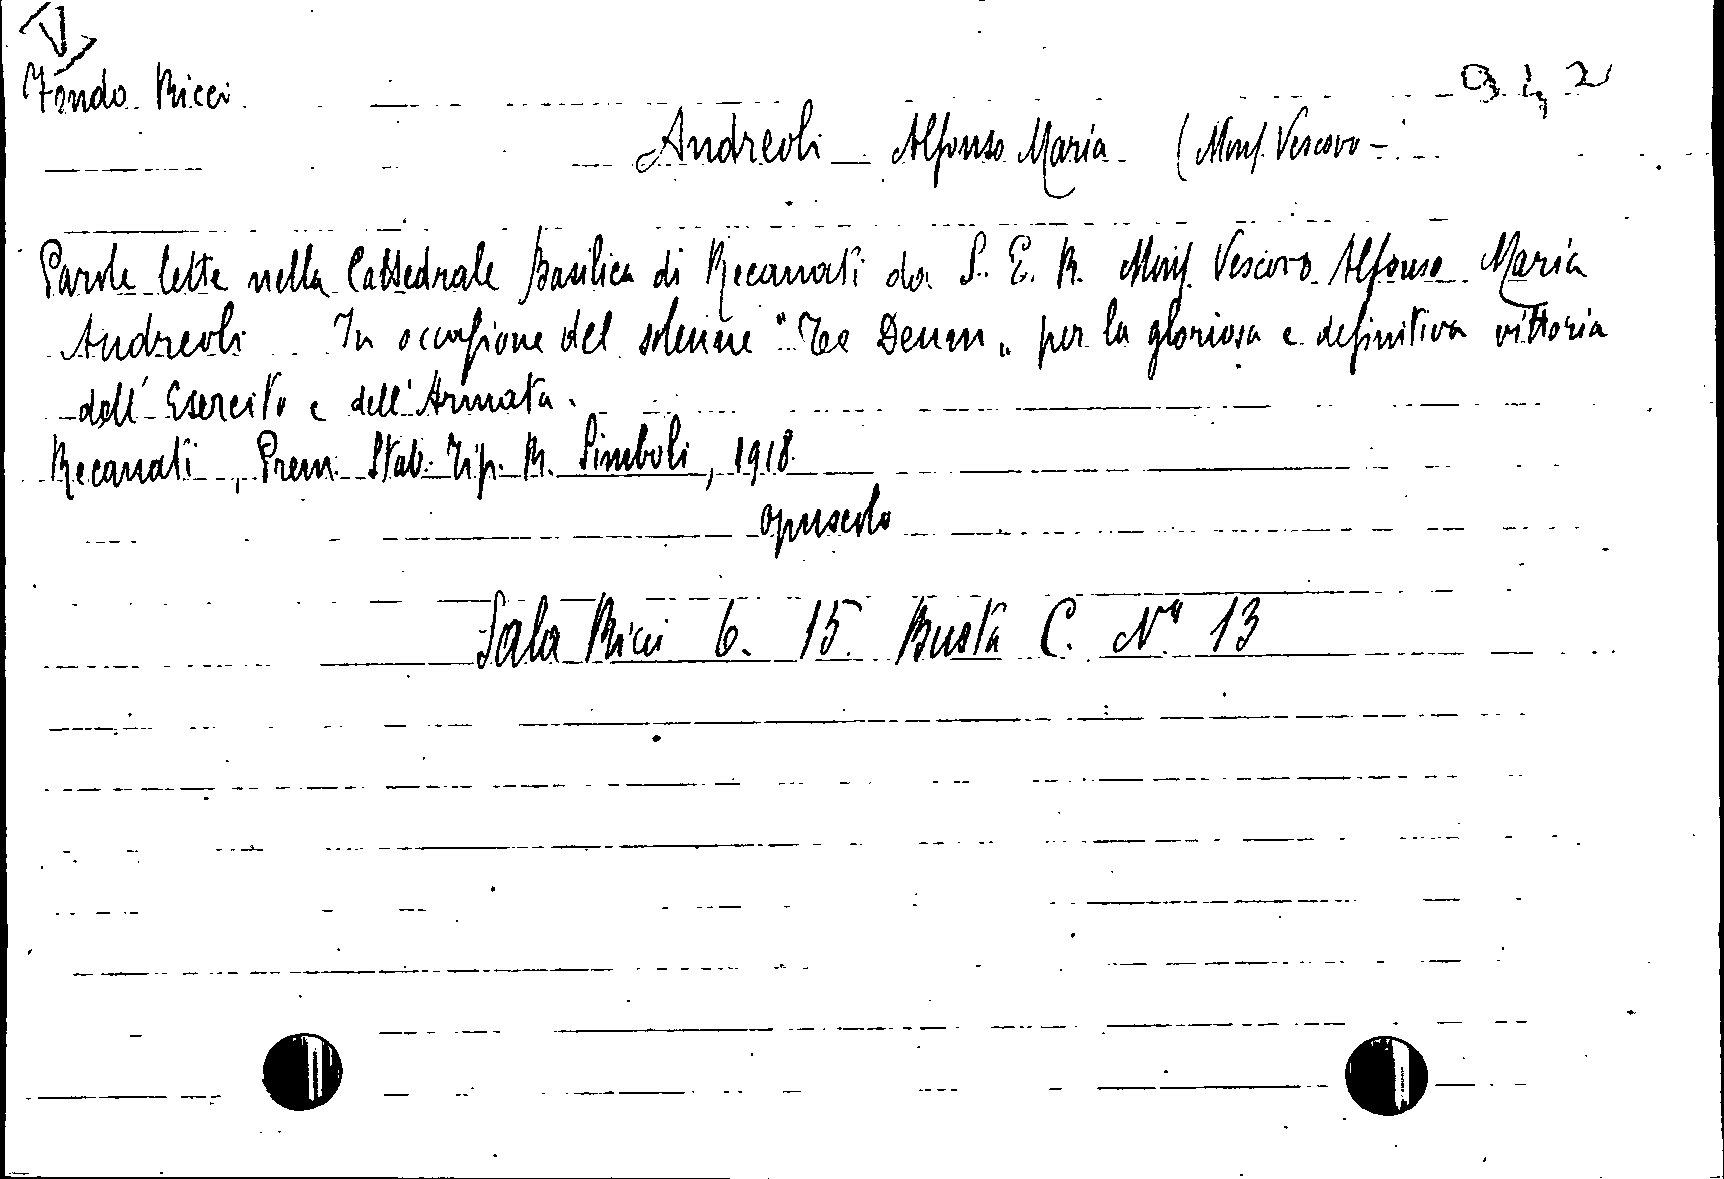 Fondo Ricci
Andreoli Alfonso Maria (Mons. Vescovo -
Parole lette nella Cattedrale Basilica di Recanati da S. E. R. Mons. Vescovo Alfonso Maria
Andreoli In occasione del solenne "Te Deum" per la gloriosa e definitiva vittoria
dell'Esercito e dell'Armata.
Recanati, Prem. Stab. Tip. R. Simboli, 1918
opuscolo
Sala Ricci 6. 15. Busta C. N° 13